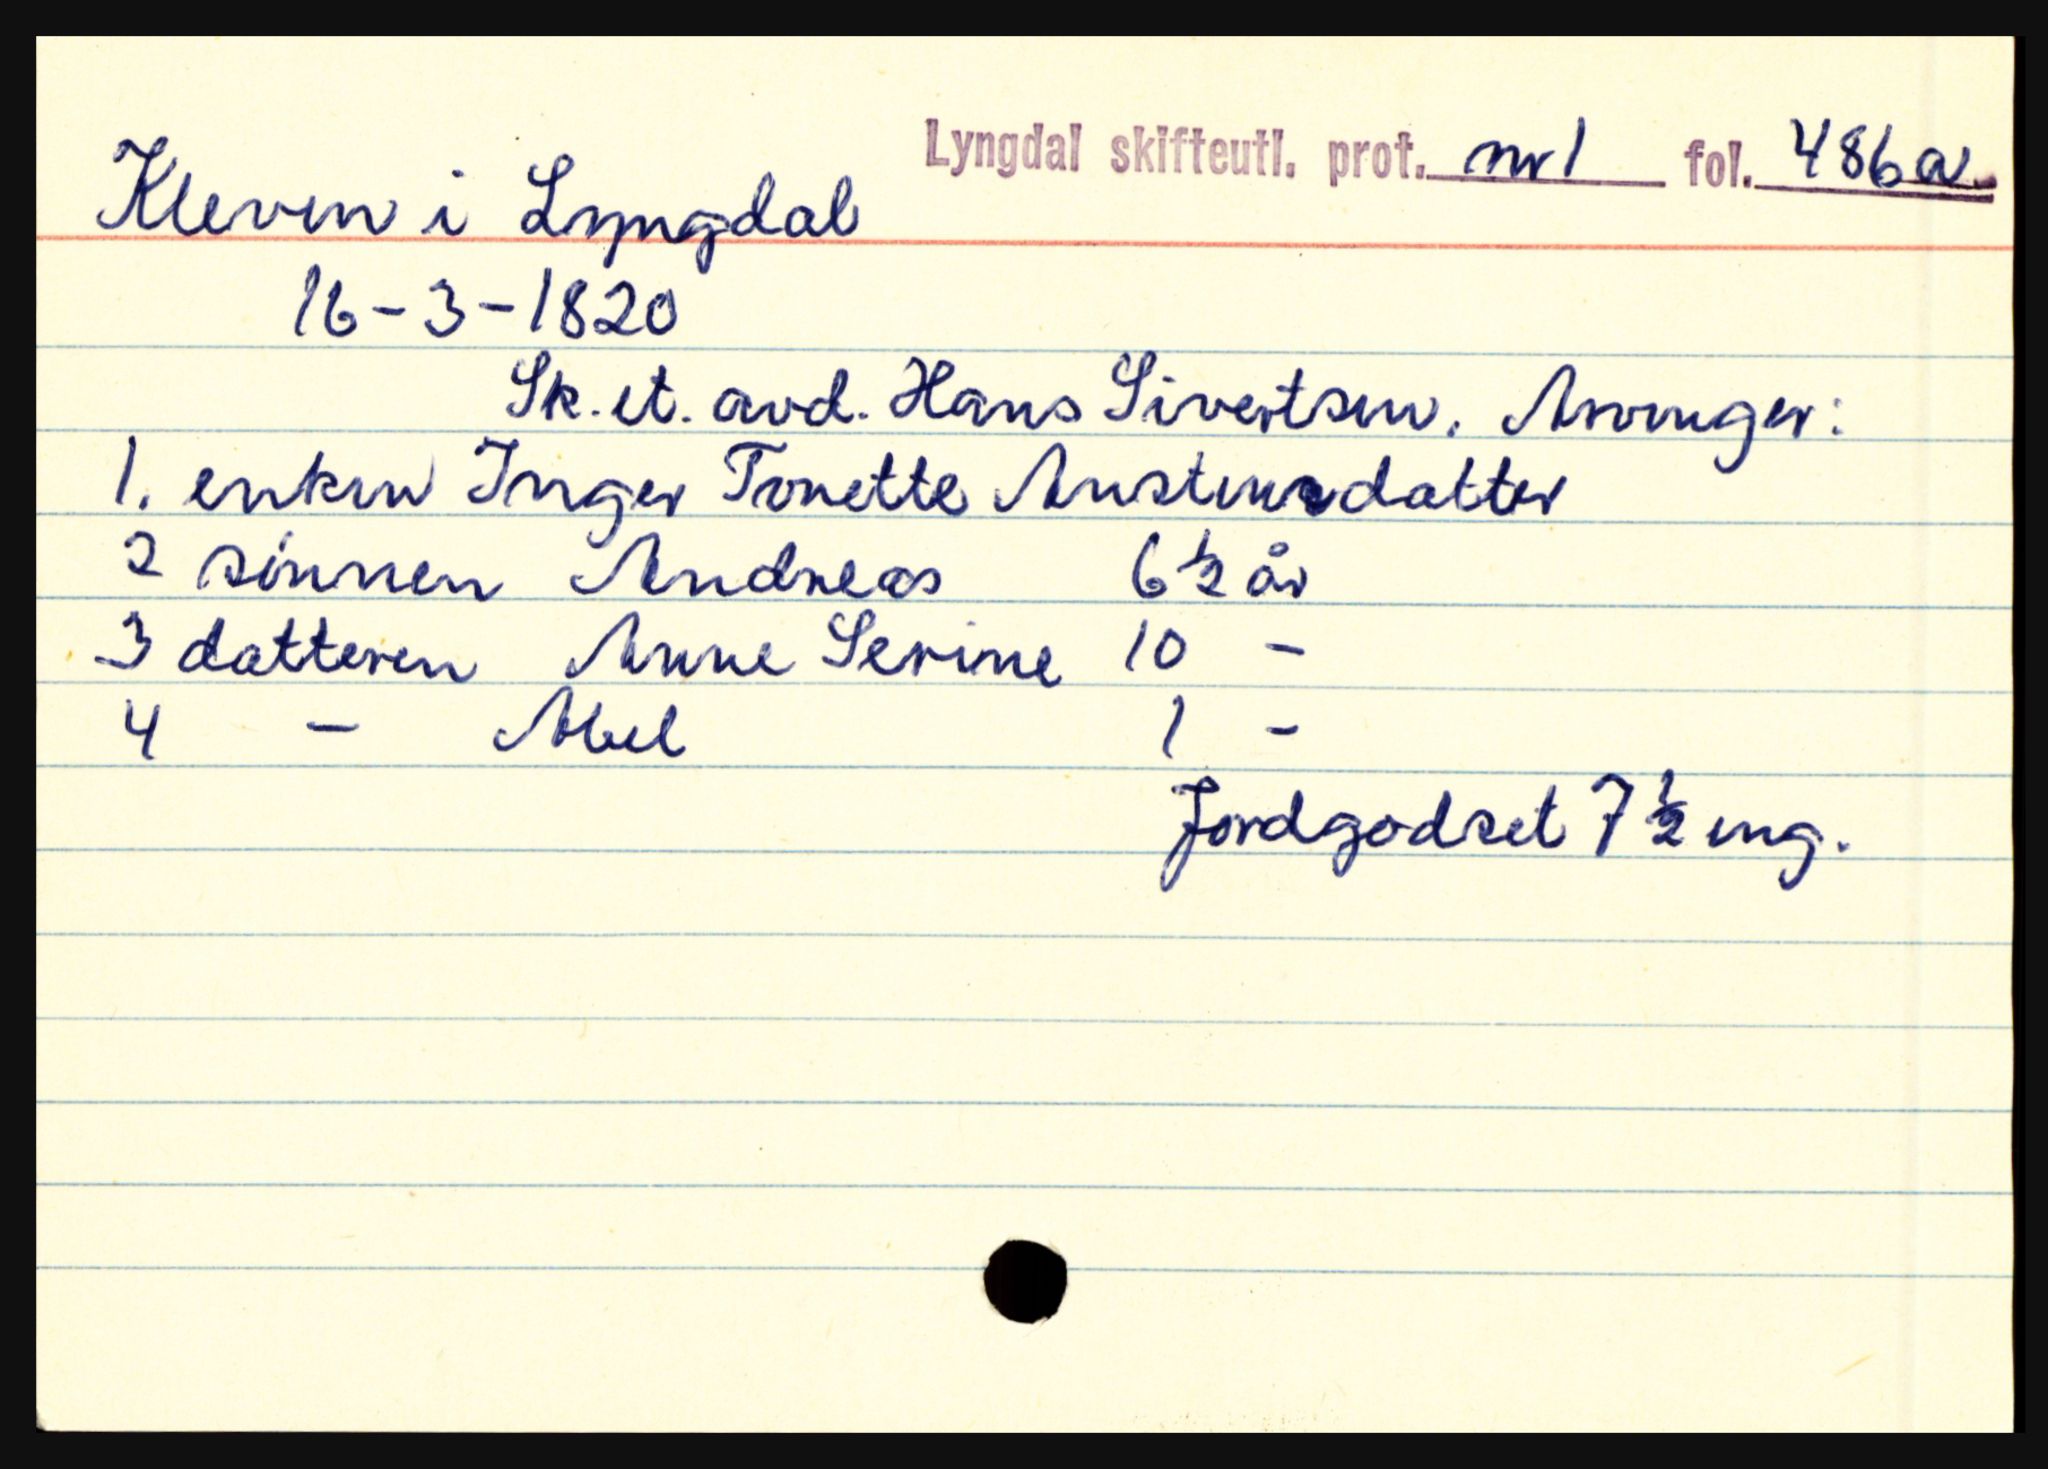 Lyngdal skifteutl. prot. nr 1 fol. 486a.
Kleven i Lyngdal
16-3-1820
Sk. et. avd. Hans Sivertsen. Arvinger:
1. enken Inger Tonette Austensdatter
2 sönnen Andreas 6 1/2 år
3 datteren Anne Serine 10 -
4 - Abel 1 -
Jordgodset 7 1/2 eng.